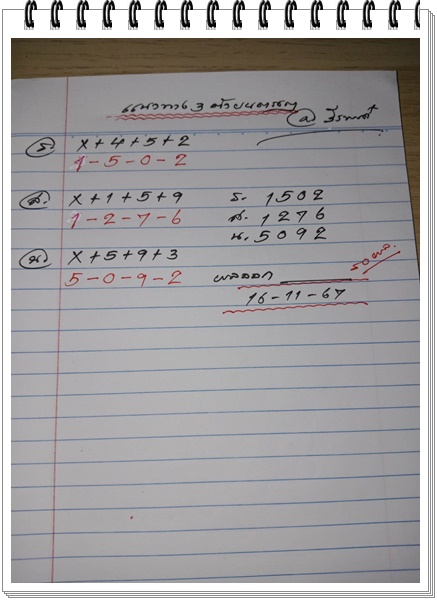 แนวทาง 3 ตัวบนตรงๆ
ร. X+4+5+2
1-5-0-2
ส. X+1+5+9 ร. 1502
1-2-7-6 ส. 1276
น. X+5+9+3 น. 5092
5-0-9-2 ผลออก
16-11-67